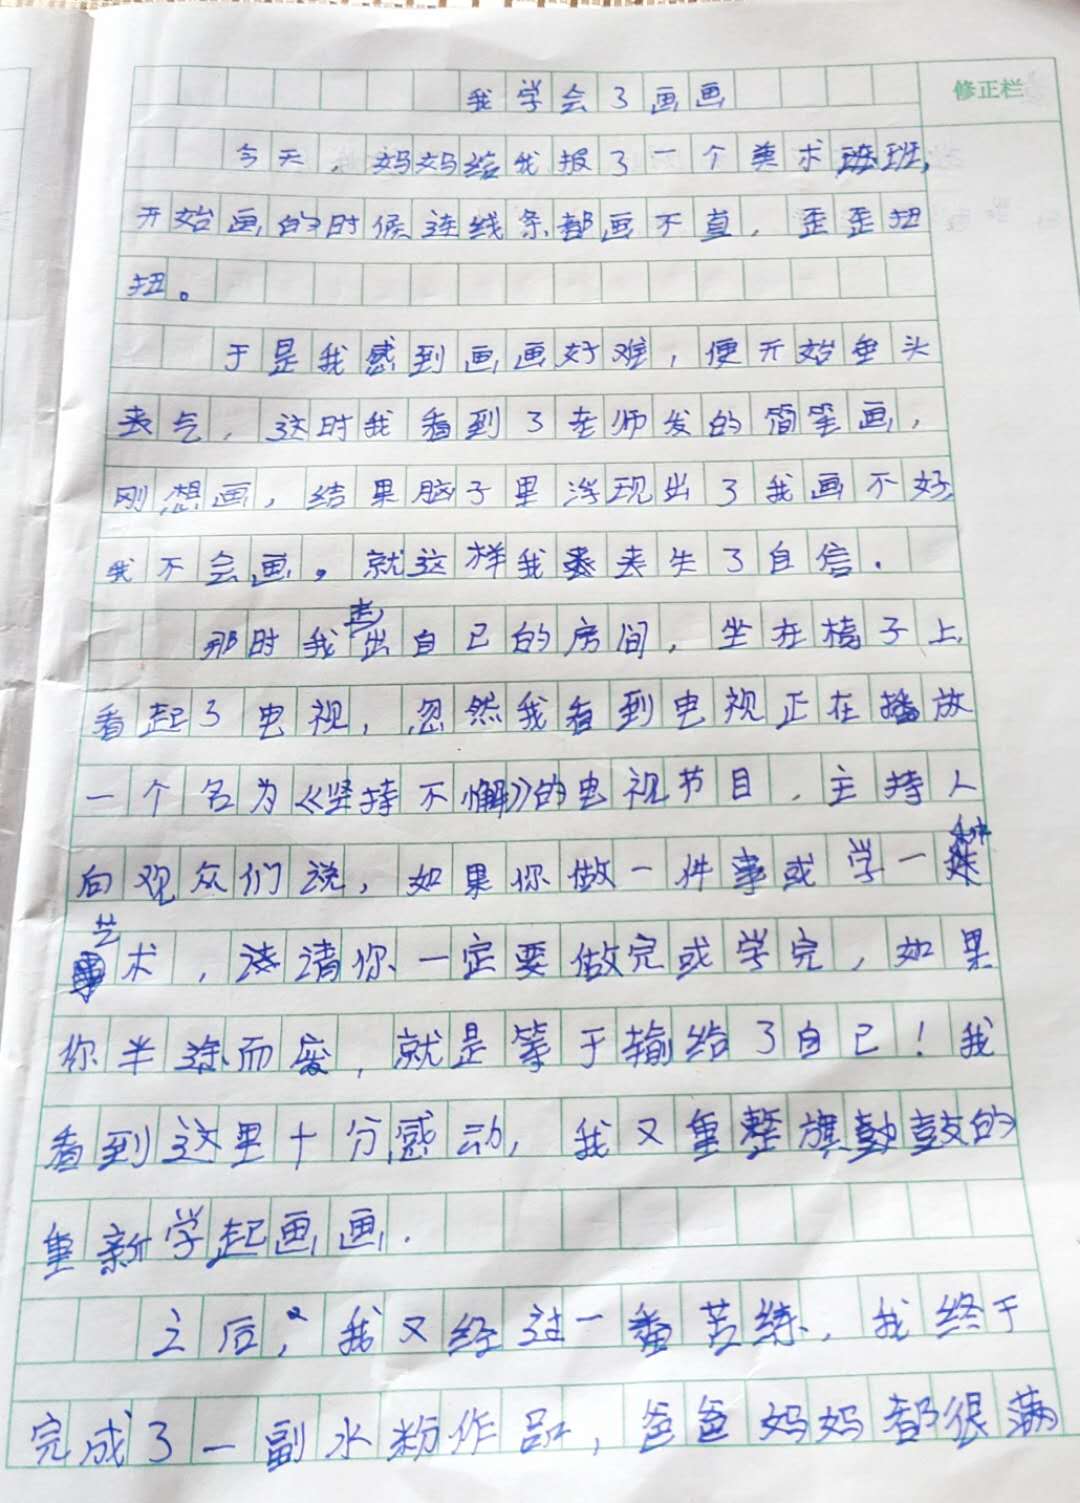 我学会了画画
修正栏
今天，妈妈给我报了一个美术班班，
开始画的时候连线条都画不直，歪歪扭
扭。
于是我感到画画好难，便开始垂头
丧气，这时我看到了老师发的简笔画，
刚想画，结果脑子里浮现出了我画不好，
我不会画。就这样我丧失了自信．
那时我走出自己的房间，坐在椅子上，
看起了电视，忽然我看到电视正在播放
一个名为《坚持不懈》的电视节目．主持人
向观众们说，如果你做一件事或学一种
艺术，请你一定要做完或学完，如果
你半途而废，就是等于输给了自己！我
看到这里十分感动，我又重整旗鼓的
重新学起画画．
之后，我又经过一番苦练，我终于
完成了一副水粉作品，爸爸妈妈都很满